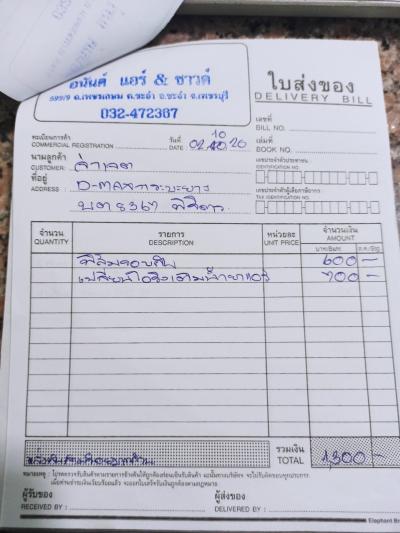 อนันต์ แอร์ & ซาวด์
599/9 ถ.เพชรเกษม ต.ชะอำ อ.ชะอำ จ.เพชรบุรี
032-472367
ใบส่งของ
DELIVERY BILL
เลขที่
BILL NO.
ทะเบียนการค้า
COMMERCIAL REGISTRATION
วันที่
DATE 02 10 20
เล่มที่
BOOK NO.
นามลูกค้า
CUSTOMER:
เลขประจำตัวประชาชน
IDENTIFICATION NO.
ที่อยู่
ADDRESS : D-MAX กระบะยาว
เลขประจำตัวผู้เสียภาษีอากร
TAX IDENTIFICATION NO.
บต 8367
จำนวน
QUANTITY
รายการ
DESCRIPTION
หน่วยละ
UNIT PRICE
จำนวนเงิน
AMOUNT
บาท/Baht
ส.ต./Stg.
ฟิล์มรอบคัน 600 —
700 —
รวมเงิน
TOTAL 1,300 —
หมายเหตุ : โปรดตรวจรับสินค้าตามรายการข้างต้นให้ถูกต้องก่อนเซ็นรับสินค้า
ผู้รับของ
RECEIVED BY :
ผู้ส่งของ
DELIVERED BY :